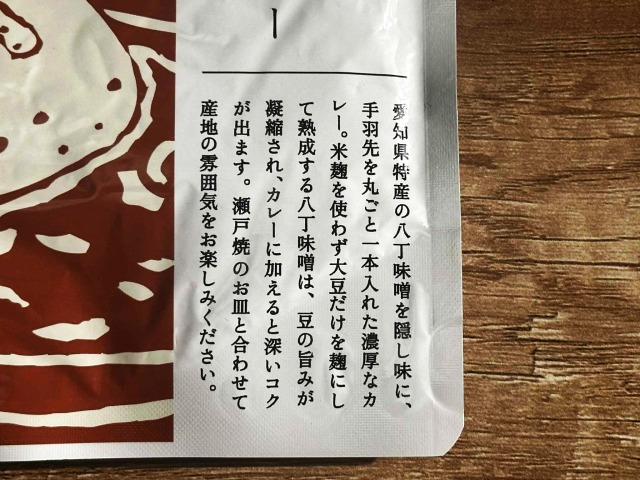 ー
愛知県特産の八丁味噌を隠し味に、
手羽先を丸ごと一本入れた濃厚なカ
レー。米麹を使わず大豆だけを麹にし
て熟成する八丁味噌は、豆の旨みが
凝縮され、カレーに加えると深いコク
が出ます。瀬戸焼のお皿と合わせて
産地の雰囲気をお楽しみください。